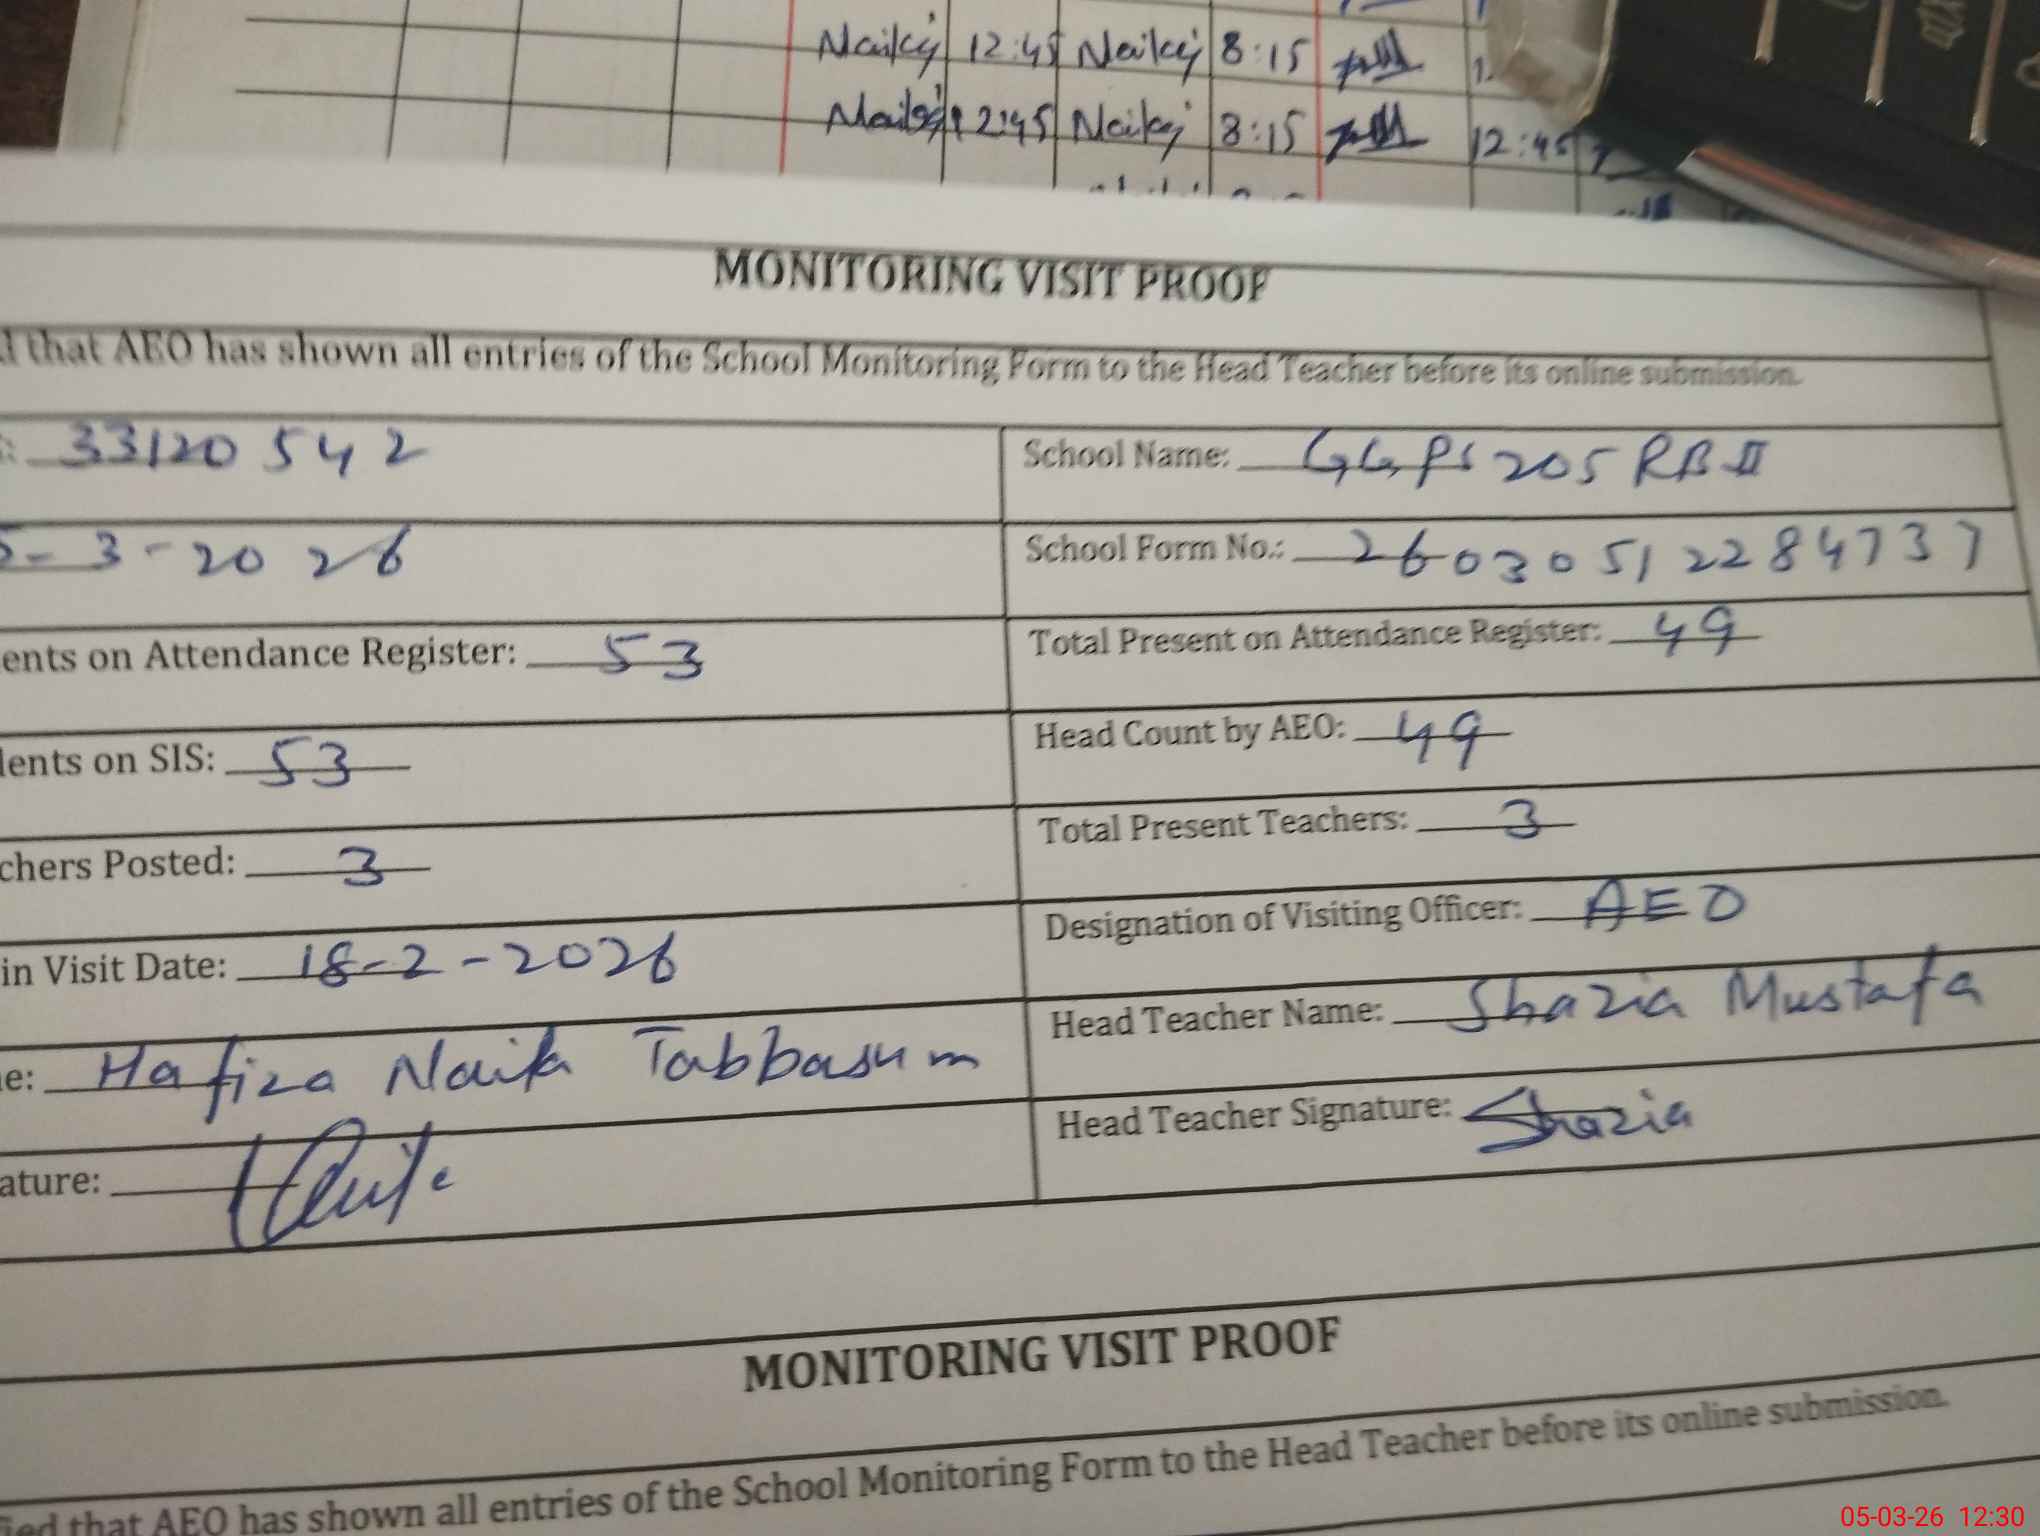 Naikej 12:45 Naikej 8:15
12:45 Naikej 8:15 12:45
MONITORING VISIT PROOF
that AEO has shown all entries of the School Monitoring Form to the Head Teacher before its online submission.
33120542 School Name: GGPS 205 RB II
5-3-2026 School Form No.: 2603051228 4737
ents on Attendance Register: 53 Total Present on Attendance Register: 49
dents on SIS: 53 Head Count by AEO: 49
chers Posted: 3 Total Present Teachers: 3
in Visit Date: 18-2-2026 Designation of Visiting Officer: AEO
e: Hafiza Naila Tabbasum Head Teacher Name: Shazia Mustafa
ature: Head Teacher Signature: Shazia
MONITORING VISIT PROOF
ied that AEO has shown all entries of the School Monitoring Form to the Head Teacher before its online submission.
05-03-26 12:30